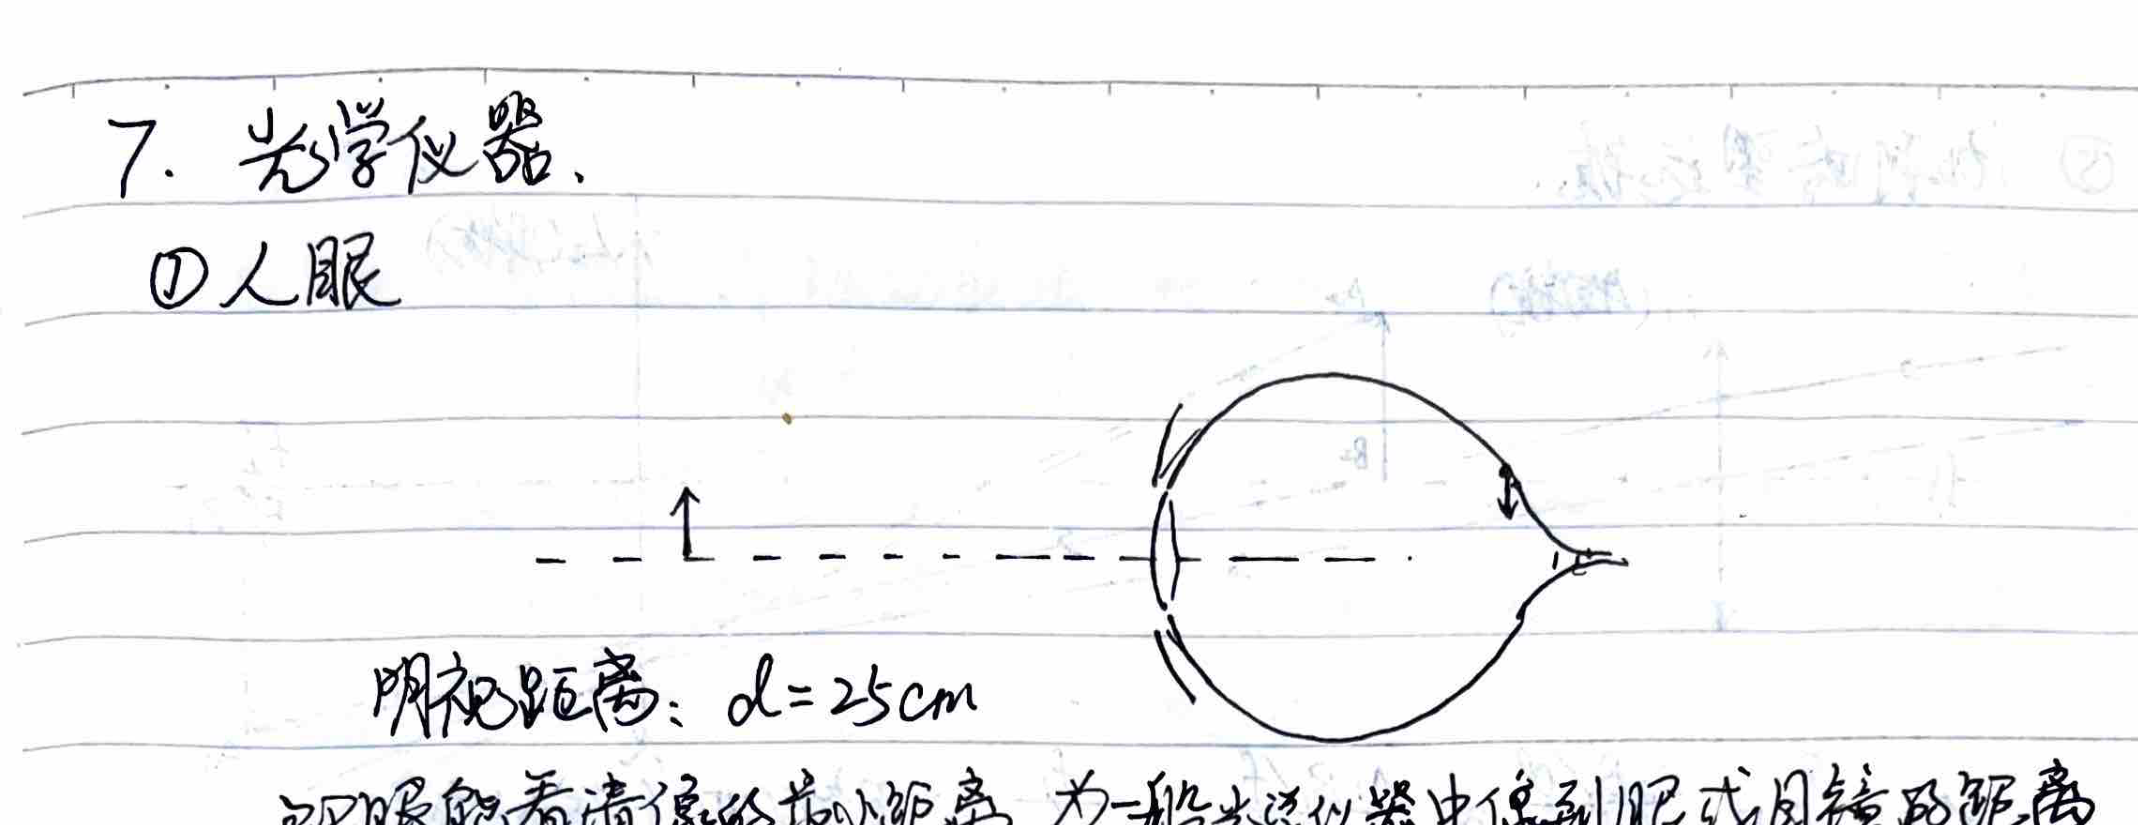 7. 光学仪器.
①人眼
明视距离: d=25cm
即眼能看清像的最小距离 为一般光学仪器中像到眼或目镜的距离